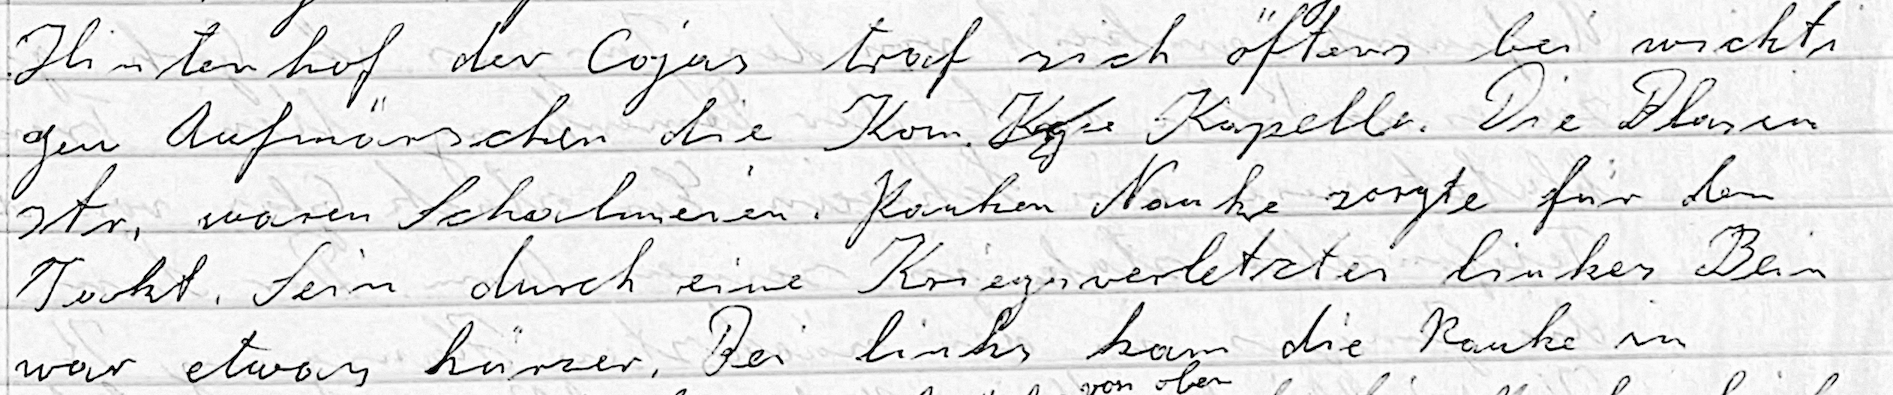 Hintenhof der Cojas traf sich öfters bei wichti
gen Aufmärschen die Kom. Kapelle. Die Blasin
str. waren Schalmeien. Pauken Nauke sorgte für den
Takt. Sein durch eine Kriegsverletztes linkes Bein
war etwas kürzer. Bei links kam die Pauke in
von oben